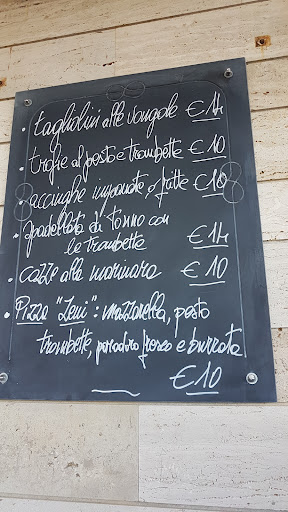 • tagliolini alle vongole € 14
• trofie al pesto e trombette € 10
• acciughe impanate e fritte € 10
• spadellata di tonno con
le trombette € 14
• cozze alla marinara € 10
• Pizza "Zeni": mozzarella, pesto
trombette, pomodoro fresco e burrata
€ 10